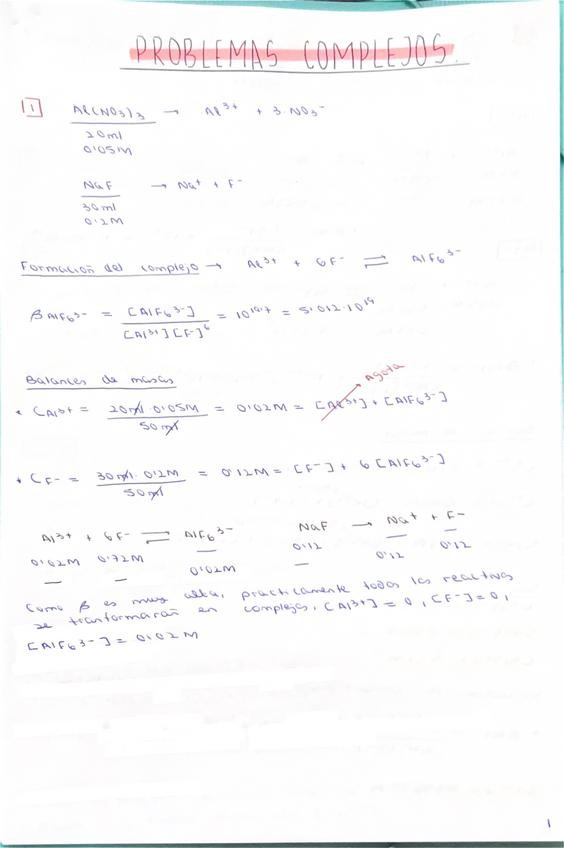 PROBLEMAS COMPLEJOS.
1 Al(NO3)3 → Al3+ + 3·NO3-
20ml
0'05M
NaF → Na+ + F-
30ml
0'2M
Formación del complejo → Al3+ + 6F- ⇌ AlF6 3-
β AlF6 3- = [AlF6 3-] / [Al3+][F-]6 = 10^19'7 = 5'012·10^19
Balances de masas
• CAl3+ = 20ml·0'05M / 50ml = 0'02M = [Al3+] + [AlF6 3-]
Agota
• CF- = 30ml·0'2M / 50ml = 0'12M = [F-] + 6[AlF6 3-]
Al3+ + 6F- ⇌ AlF6 3- NaF → Na+ + F-
0'02M 0'12M — 0'12 — —
— — 0'02M — 0'12 0'12
Como β es muy alta, practicamente todos los reactivos
se tranformarán en complejos. [Al3+] = 0, [F-] = 0,
[AlF6 3-] = 0'02M
1